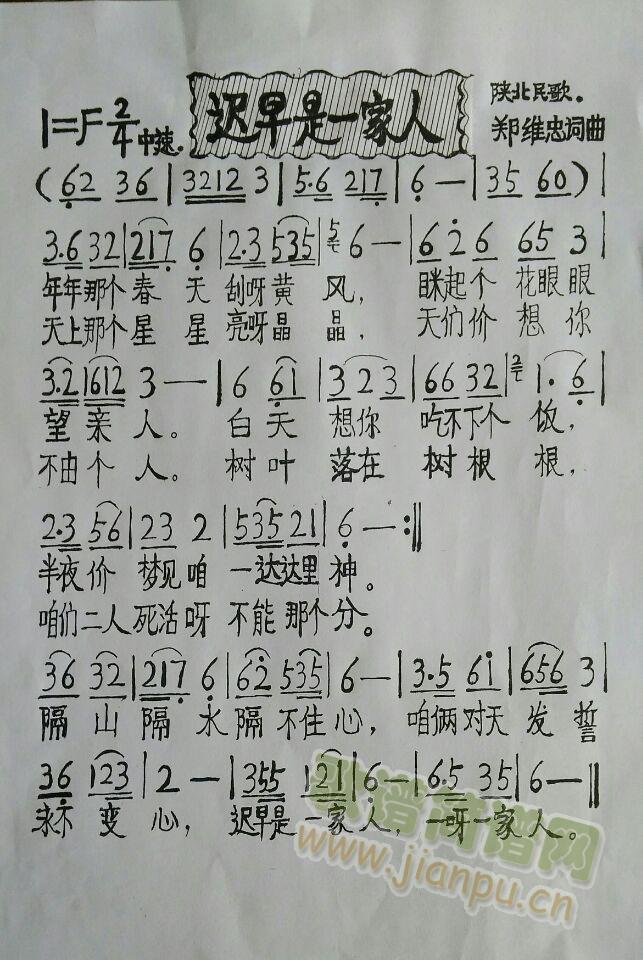 迟早是一家人
陕北民歌。
1=F 2/4 中速.
郑维忠词曲
(62 36 | 3212 3 | 5·6 217 | 6 — | 35 60) |
3·6 32 | 217 6 | 2·3 535 | 5 6 — | 6 2 6 65 3 |
年年那个春天刮呀黄风, 眯起个花眼眼
天上那个星星亮呀晶晶, 天们价想你
3·2 1612 3 — | 6 61 | 3 2 3 | 66 32 | 2 1· 6 |
望亲人。白天想你吃不下个饭,
不由个人。树叶落在树根根,
2·3 56 | 23 2 | 535 21 | 6 — :||
半夜价梦见咱一达达里神。
咱们二人死活呀不能那个分。
36 32 | 217 6 | 62 535 | 6 — | 3·5 61 | 656 3 |
隔山隔水隔不住心, 咱俩对天发誓
36 123 | 2 — | 355 121 | 6 — | 6·5 35 | 6 — ||
永不变心, 迟早是一家人, 一呀一家人。
歌谱简谱网
www.jianpu.cn